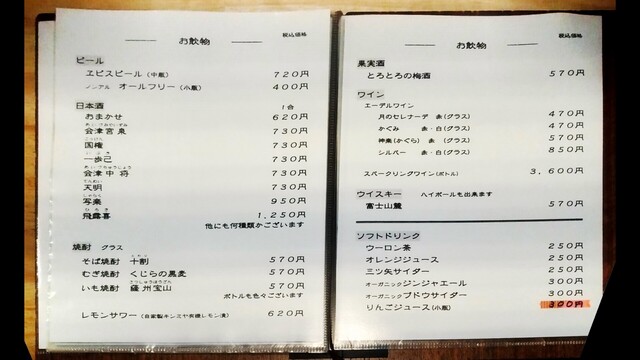 お飲物
税込価格
ビール
ヱビスビール(中瓶) 720円
ノンアル オールフリー(小瓶) 400円
日本酒 1合
おまかせ 620円
会津宮泉 730円
こっけん
国権 730円
一歩己 730円
会津中将 730円
てんめい
天明 730円
しゃらく
写楽 950円
ひろき
飛露喜 1,250円
他にも何種類かございます
焼酎 グラス
そば焼酎 十割 570円
むぎ焼酎 くじらの黒麦 570円
さっしゅうほうざん
いも焼酎 薩州宝山 570円
ボトルも色々ございます
レモンサワー(自家製キンミヤ有機レモン漬) 620円
お飲物
税込価格
果実酒
とろとろの梅酒 570円
ワイン
エーデルワイン
月のセレナーデ 赤(グラス) 470円
かぐみ 赤・白(グラス) 470円
神楽(かぐら) 赤(グラス) 570円
シルバー 赤・白(グラス) 850円
スパークリングワイン(ボトル) 3,600円
ウイスキー ハイボールも出来ます
富士山麓 570円
ソフトドリンク
ウーロン茶 250円
オレンジジュース 250円
三ツ矢サイダー 250円
オーガニックジンジャエール 300円
オーガニックブドウサイダー 300円
りんごジュース(小瓶) 300円